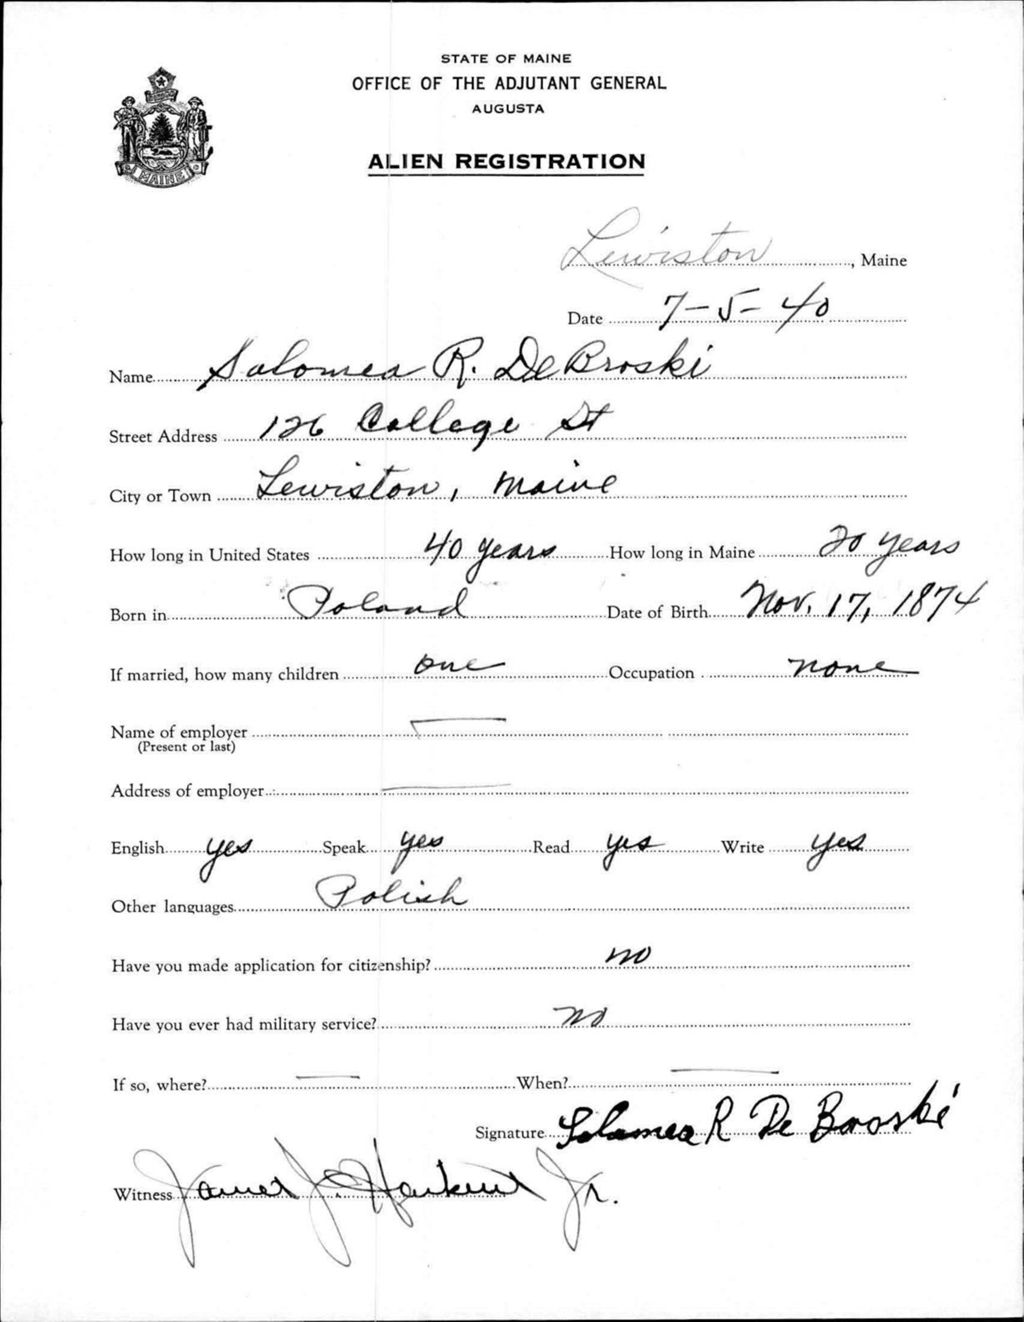 STATE OF MAINE
OFFICE OF THE ADJUTANT GENERAL
AUGUSTA
ALIEN REGISTRATION
MAINE
Lewiston, Maine
Date 7-5-40
Name Salomea R. DeBroski
Street Address 126 College St
City or Town Lewiston, Maine
How long in United States 40 years How long in Maine 20 years
Born in Poland Date of Birth Nov. 17, 1874
If married, how many children one Occupation none
Name of employer
(Present or last)
Address of employer
English yes Speak yes Read yes Write yes
Other languages Polish
Have you made application for citizenship? no
Have you ever had military service? no
If so, where? When?
Signature Salomea R De Broski
Witness James J. Jr.